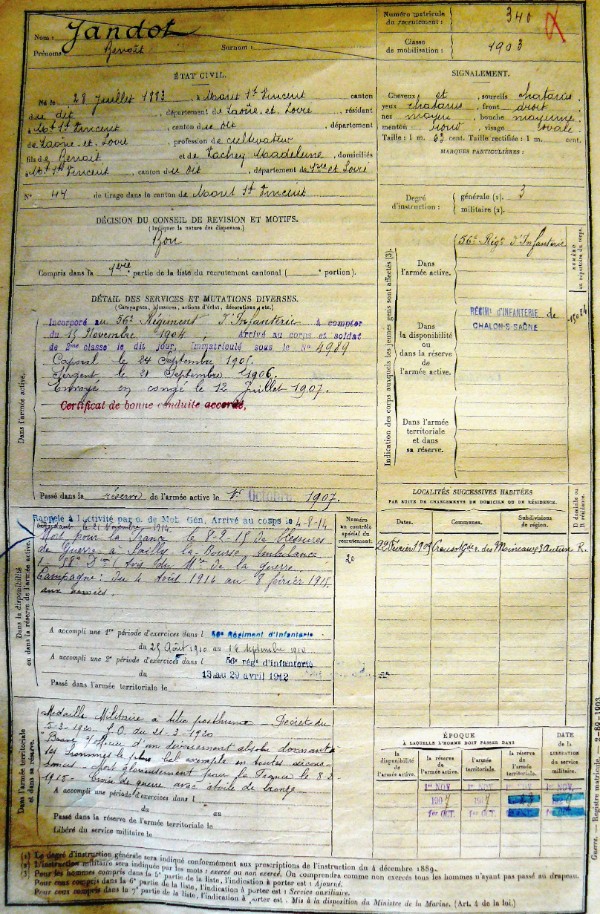 Nom : Jandot
Prénoms : Benoit Surnom :
Numéro matricule du recrutement : 340
Classe de mobilisation : 1903
ÉTAT CIVIL.
Né le 28 Juillet 1883 à Mont St Vincent canton
du dit , département de Saône et Loire , résidant
à Mt St Vincent , canton du dit , département
de Saône et Loire , profession de cultivateur
fils de Benoit et de Madeleine , domiciliés
à Mt St Vincent , canton du dit , département de S. et Loire
N° 44 de tirage dans le canton de Mont St Vincent
SIGNALEMENT.
Cheveux et sourcils chatains
yeux chatains , front droit
nez moyen , bouche moyenne
menton rond , visage ovale
Taille : 1 m. 63 cent. Taille rectifiée : 1 m. cent.
MARQUES PARTICULIÈRES :
Degré d'instruction : générale (1). 3
militaire (2).
DÉCISION DU CONSEIL DE REVISION ET MOTIFS.
Bon
Compris dans la 1ère partie de la liste du recrutement cantonal ( portion).
DÉTAIL DES SERVICES ET MUTATIONS DIVERSES.
(Campagnes, blessures, actions d'éclat, décorations, etc.)
Dans l'armée active.
Incorporé au 56e Régiment d'Infanterie à compter
du 15 Novembre 1904 Arrivé au corps et soldat
de 2me classe le dit jour, immatriculé sous le No 4989
Caporal le 24 Septembre 1905.
Sergent le 21 Septembre 1906.
Envoyé en congé le 12 Juillet 1907.
Certificat de bonne conduite accordé,
Passé dans la réserve de l'armée active le 1er Octobre 1907.
Indication des corps auxquels les jeunes gens sont affectés (3).
Dans l'armée active.
56e Régt d'Infanterie
Dans la disponibilité ou dans la réserve de l'armée active.
RÉGIMT D'INFANTERIE de
CHALON S. SAÔNE
Dans l'armée territoriale et dans sa réserve.
LOCALITÉS SUCCESSIVES HABITÉES
PAR SUITE DE CHANGEMENTS DE DOMICILE OU DE RÉSIDENCE.
Dates. Communes. Subdivisions de région. D. domicile ou R. résidence.
Creusot Autun R.
Numéro au contrôle spécial du recrutement.
Dans la disponibilité ou dans la réserve de l'armée active.
Rappelé à l'activité par o. de Mob. Gén. Arrivé au corps le 4-8-14
Mort pour la France le 8-2-15 de blessures
de Guerre à Sailly la Bourse, ambulance
avis du Mre de la guerre
Campagne : Du 4 Août 1914 au 8 février 1915
aux armées.
A accompli une 1re période d'exercices dans l 56e Régiment d'Infanterie
du 25 Août 1910 au Septembre 1910
A accompli une 2e période d'exercices dans l 56e régt d'infanterie
13 au 29 avril 1912
Passé dans l'armée territoriale le
Dans l'armée territoriale et dans sa réserve.
Médaille Militaire à titre posthume - Décret du
J.O. du 21-3-1920
Brave s/officier d'un dévouement absolu donnant à
ses hommes le plus bel exemple en toutes circons-
tances. Mort glorieusement pour la France le 8-2-
1915 - Croix de guerre avec étoile de bronze -
A accompli une période d'exercices dans l
du au
Passé dans la réserve de l'armée territoriale le
Libéré du service militaire le
ÉPOQUE
À LAQUELLE L'HOMME DOIT PASSER DANS
la disponibilité de l'armée active. la réserve de l'armée active. l'armée territoriale. la réserve de l'armée territoriale.
DATE de la LIBÉRATION du service militaire.
1er NOV. 1er NOV. 1er NOV. 1er NOV.
1er OCT. 1er OCT.
(1) Le degré d'instruction générale sera indiqué conformément aux prescriptions de l'Instruction du 4 décembre 1889.
(2) L'instruction militaire sera indiquée par les mots : exercé ou non exercé. On comprendra comme non exercés tous les hommes n'ayant pas passé au drapeau.
(3) Pour les hommes compris dans la 5e partie de la liste, l'indication à porter est : Ajourné.
Pour ceux compris dans la 6e partie de la liste, l'indication à porter est : Service auxiliaire.
Pour ceux compris dans la 7e partie de la liste, l'indication à porter est : Mis à la disposition du Ministre de la Marine. (Art. 4 de la loi.)
Guerre. — Registre matricule.